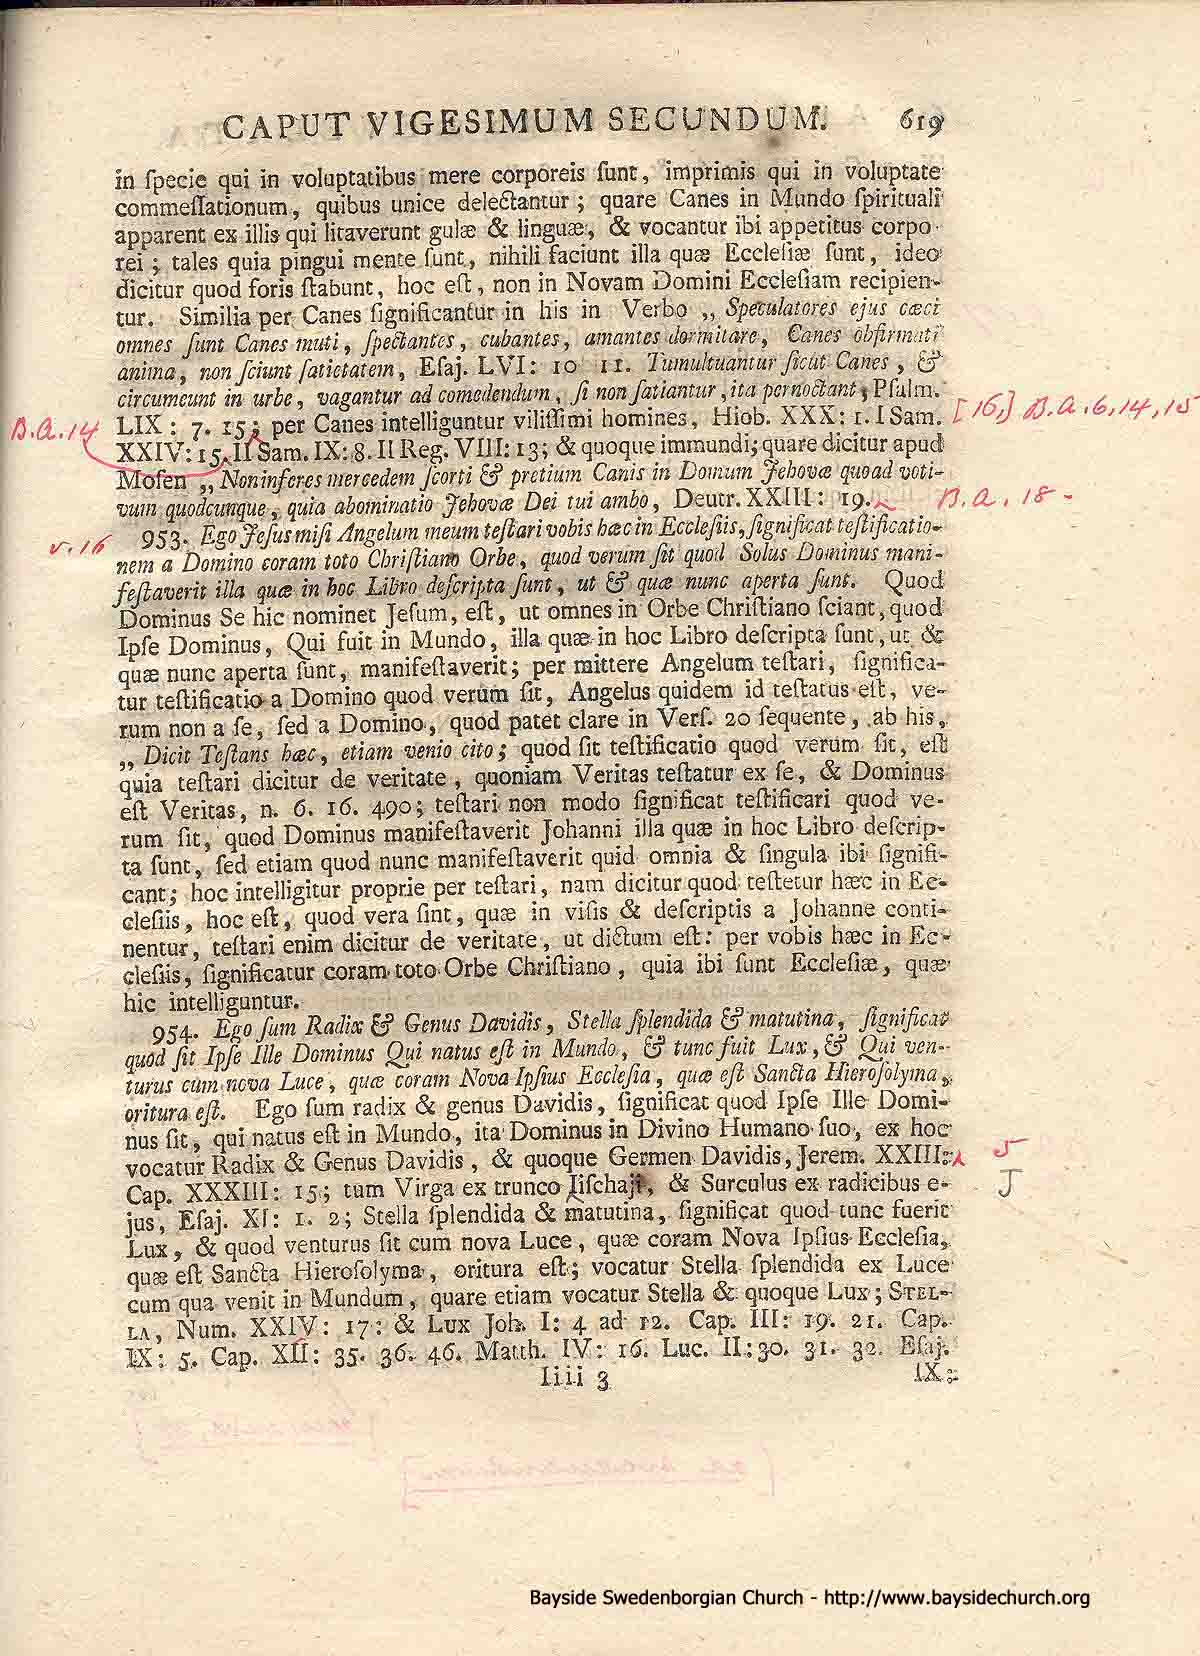 CAPUT VIGESIMUM SECUNDUM. 619
in ſpecie qui in voluptatibus mere corporeis ſunt, imprimis qui in voluptate
commeſſationum, quibus unice delectantur; quare Canes in Mundo ſpirituali
apparent ex illis qui litaverunt gulæ & linguæ, & vocantur ibi appetitus corpo-
rei; tales quia pingui mente ſunt, nihili faciunt illa quæ Eccleſiæ ſunt, ideo
dicitur quod foris ſtabunt, hoc eſt, non in Novam Domini Eccleſiam recipien-
tur. Similia per Canes ſignificantur in his in Verbo „ Speculatores ejus cæci
omnes ſunt Canes muti, ſpectantes, cubantes, amantes dormitare, Canes obfirmati
anima, non ſciunt ſatietatem, Eſaj. LVI: 10 11. Tumultuantur ſicut Canes, &
circumeunt in urbe, vagantur ad comedendum, ſi non ſatiantur, ita pernoctant, Pſalm.
B.a. 14 LIX: 7. 15; per Canes intelliguntur viliſſimi homines, Hiob. XXX: 1. I Sam. [16,] B.a. 6, 14, 15
XXIV: 15. II Sam. IX: 8. II Reg. VIII: 13; & quoque immundi; quare dicitur apud
Moſen „ Non inferes mercedem ſcorti & pretium Canis in Domum Jehovæ quoad voti-
vum quodcunque, quia abominatio Jehovæ Dei tui ambo, Deutr. XXIII: 19. B.a. 18 -
v. 16 953. Ego Jeſus miſi Angelum meum teſtari vobis hæc in Eccleſiis, ſignificat teſtificatio-
nem a Domino coram toto Chriſtiano Orbe, quod verum ſit quod Solus Dominus mani-
feſtaverit illa quæ in hoc Libro deſcripta ſunt, ut & quæ nunc aperta ſunt. Quod
Dominus Se hic nominet Jeſum, eſt, ut omnes in Orbe Chriſtiano ſciant, quod
Ipſe Dominus, Qui fuit in Mundo, illa quæ in hoc Libro deſcripta ſunt, ut &
quæ nunc aperta ſunt, manifeſtaverit; per mittere Angelum teſtari, ſignifica-
tur teſtificatio a Domino quod verum ſit, Angelus quidem id teſtatus eſt, ve-
rum non a ſe, ſed a Domino, quod patet clare in Verſ. 20 ſequente, ab his,
„ Dicit Teſtans hæc, etiam venio cito; quod ſit teſtificatio quod verum ſit, eſt
quia teſtari dicitur de veritate, quoniam Veritas teſtatur ex ſe, & Dominus
eſt Veritas, n. 6. 16. 490; teſtari non modo ſignificat teſtificari quod ve-
rum ſit, quod Dominus manifeſtaverit Johanni illa quæ in hoc Libro deſcrip-
ta ſunt, ſed etiam quod nunc manifeſtaverit quid omnia & ſingula ibi ſignifi-
cant; hoc intelligitur proprie per teſtari, nam dicitur quod teſtetur hæc in Ec-
cleſiis, hoc eſt, quod vera ſint, quæ in viſis & deſcriptis a Johanne conti-
nentur, teſtari enim dicitur de veritate, ut dictum eſt: per vobis hæc in Ec-
cleſiis, ſignificatur coram toto Orbe Chriſtiano, quia ibi ſunt Eccleſiæ, quæ
hic intelliguntur.
954. Ego ſum Radix & Genus Davidis, Stella ſplendida & matutina, ſignificat
quod ſit Ipſe Ille Dominus Qui natus eſt in Mundo, & tunc fuit Lux, & Qui ven-
turus cum nova Luce, quæ coram Nova Ipſius Eccleſia, quæ eſt Sancta Hieroſolyma,
oritura eſt. Ego ſum radix & genus Davidis, ſignificat quod Ipſe Ille Domi-
nus ſit, qui natus eſt in Mundo, ita Dominus in Divino Humano ſuo, ex hoc
vocatur Radix & Genus Davidis, & quoque Germen Davidis, Jerem. XXIII: 5
Cap. XXXIII: 15; tum Virga ex trunco Jiſchaji, & Surculus ex radicibus e- J
jus, Eſaj. XI: 1. 2; Stella ſplendida & matutina, ſignificat quod tunc fuerit
Lux, & quod venturus ſit cum nova Luce, quæ coram Nova Ipſius Eccleſia,
quæ eſt Sancta Hieroſolyma, oritura eſt; vocatur Stella ſplendida ex Luce
cum qua venit in Mundum, quare etiam vocatur Stella & quoque Lux; STEL-
LA, Num. XXIV: 17: & Lux Joh. I: 4 ad 12. Cap. III: 19. 21. Cap.
IX: 5. Cap. XII: 35. 36. 46. Matth. IV: 16. Luc. II: 30. 31. 32. Eſaj.
Iiii 3 IX:
Bayside Swedenborgian Church - http://www.baysidechurch.org